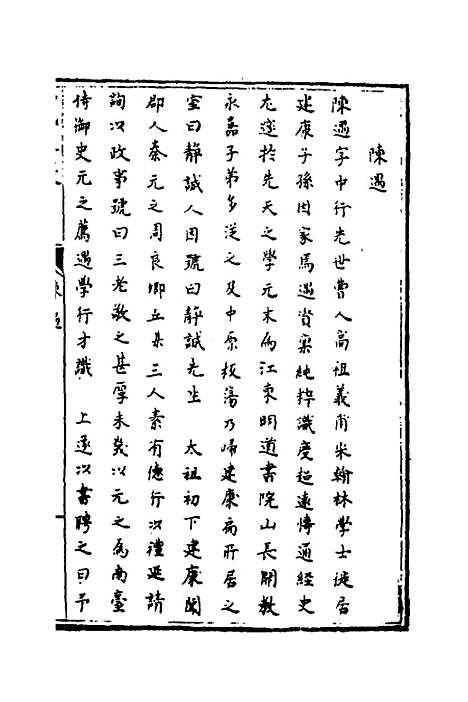 陳遇
陳遇字中行先世曹人高祖義甫宋翰林學士徙居
建康子孫因家焉遇資稟純粹識度超遠博通經史
尤邃於先天之學元末為江東明道書院山長開教
永嘉子弟多從之及中原板蕩乃歸建康扁所居之
室曰靜誠人因號曰靜誠先生　太祖初下建康聞
郡人秦元之周良卿丘某三人素有德行以禮延請
詢以政事號曰三老敬之甚厚未幾以元之為南臺
侍御史元之薦遇學行才識　上遂以書聘之曰予